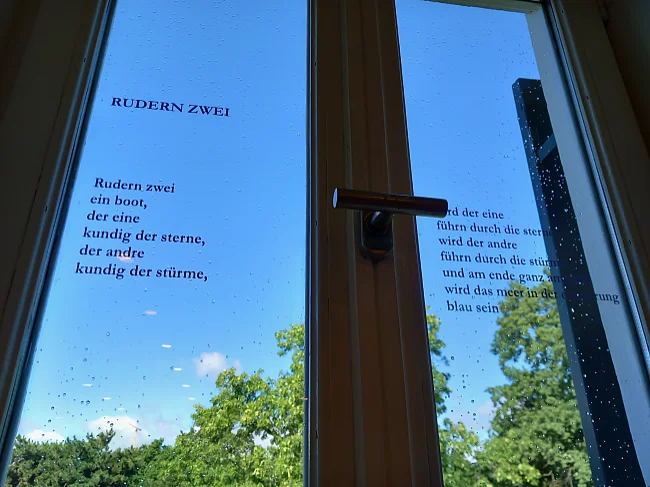 RUDERN ZWEI
Rudern zwei
ein boot,
der eine
kundig der sterne,
der andre
kundig der stürme,
wird der eine
führn durch die sterne
wird der andre
führn durch die stürme
und am ende ganz am
wird das meer in der erinnerung
blau sein